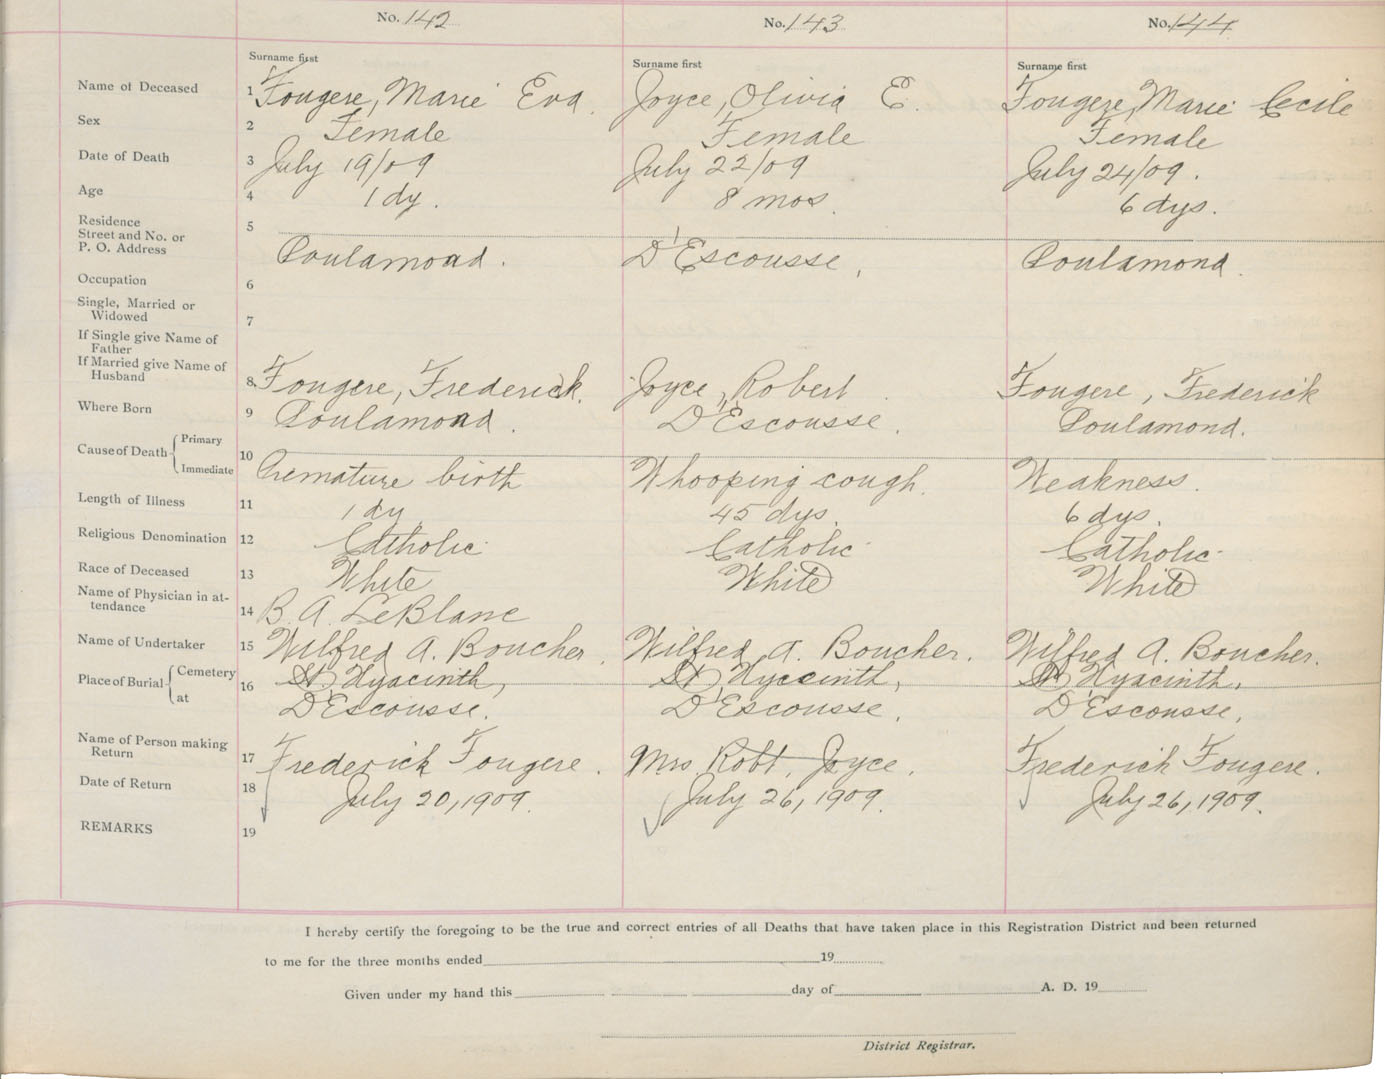 No. 142 No. 143 No. 144
Surname first Surname first Surname first
Name of Deceased 1 Fougere, Marie Eva. Joyce, Olivia E. Fougere, Marie Cecile
Sex 2 Female Female Female
Date of Death 3 July 19/09 July 22/09 July 24/09.
Age 4 1 dy. 8 mos. 6 dys.
Residence
Street and No. or 5
P. O. Address Poulamond. D'Escousse, Poulamond.
Occupation 6
Single, Married or
Widowed 7
If Single give Name of
Father
If Married give Name of
Husband 8 Fougere, Frederick. Joyce, Robert. Fougere, Frederick
Where Born 9 Poulamond. D'Escousse. Poulamond.
Cause of Death Primary
Immediate 10 Premature birth Whooping cough. Weakness.
Length of Illness 11 1 dy. 45 dys. 6 dys.
Religious Denomination 12 Catholic Catholic Catholic
Race of Deceased 13 White White White
Name of Physician in at-
tendance 14 B. A. LeBlanc
Name of Undertaker 15 Wilfred A. Boucher. Wilfred A. Boucher. Wilfred A. Boucher.
Place of Burial Cemetery 16 St Hyacinth, St Hyccinth, St Hyacinth,
at D'Escousse. D'Escousse. D'Escousse,
Name of Person making
Return 17 Frederick Fougere. Mrs. Robt. Joyce. Frederick Fougere.
Date of Return 18 July 20, 1909. July 26, 1909. July 26, 1909.
REMARKS 19
I hereby certify the foregoing to be the true and correct entries of all Deaths that have taken place in this Registration District and been returned
to me for the three months ended 19
Given under my hand this day of A. D. 19
District Registrar.